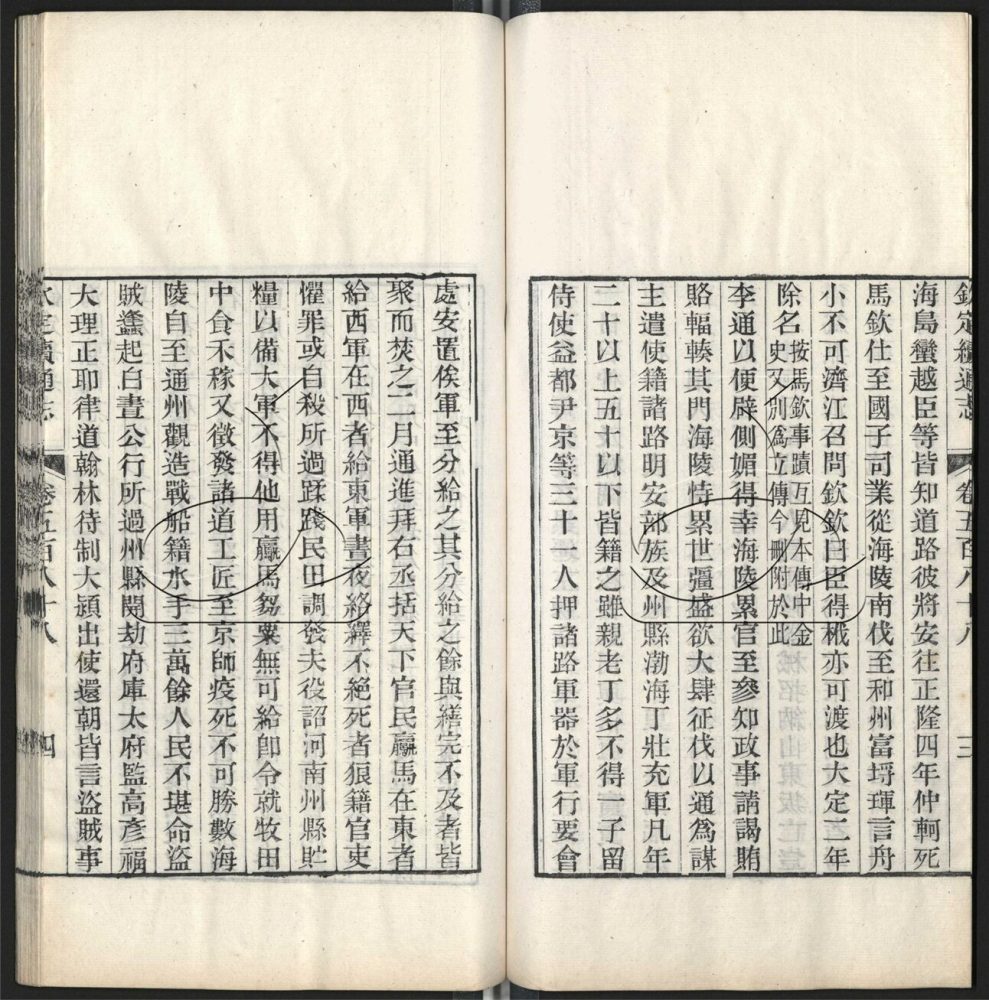 欽定續通志 卷五百八十八 三
海島蠻越臣等皆知道路彼將安往正隆四年仲軻死
馬欽仕至國子司業從海陵南伐至和州富埒琿言舟
小不可濟江召問欽欽曰臣得栰亦可渡也大定二年
除名按馬欽事蹟互見本傳中金
史又別爲立傳今刪附於此
李通以便辟側媚得幸海陵累官至參知政事請謁賄
賂輻輳其門海陵恃累世彊盛欲大肆征伐以通爲謀
主遣使籍諸路明安部族及州縣渤海丁壯充軍凡年
二十以上五十以下皆籍之雖親老丁多不得一子留
侍使益都尹京等三十一人押諸路軍器於軍行要會
處安置俟軍至分給之其分給之餘與繕完不及者皆
聚而焚之二月通進拜右丞括天下官民驘馬在東者
給西軍在西者給東軍晝夜絡繹不絕死者狼籍官吏
懼罪或自殺所過蹂踐民田調發夫役詔河南州縣貯
糧以備大軍不得他用驘馬芻粟無可給卽令就牧田
中食禾稼又徵發諸道工匠至京師疫死不可勝數海
陵自至通州觀造戰船籍水手三萬餘人民不堪命盜
賊蠭起白晝公行所過州縣閧劫府庫太府監高彥福
大理正耶律道翰林待制大潁出使還朝皆言盜賊事
欽定續通志 卷五百八十八 四